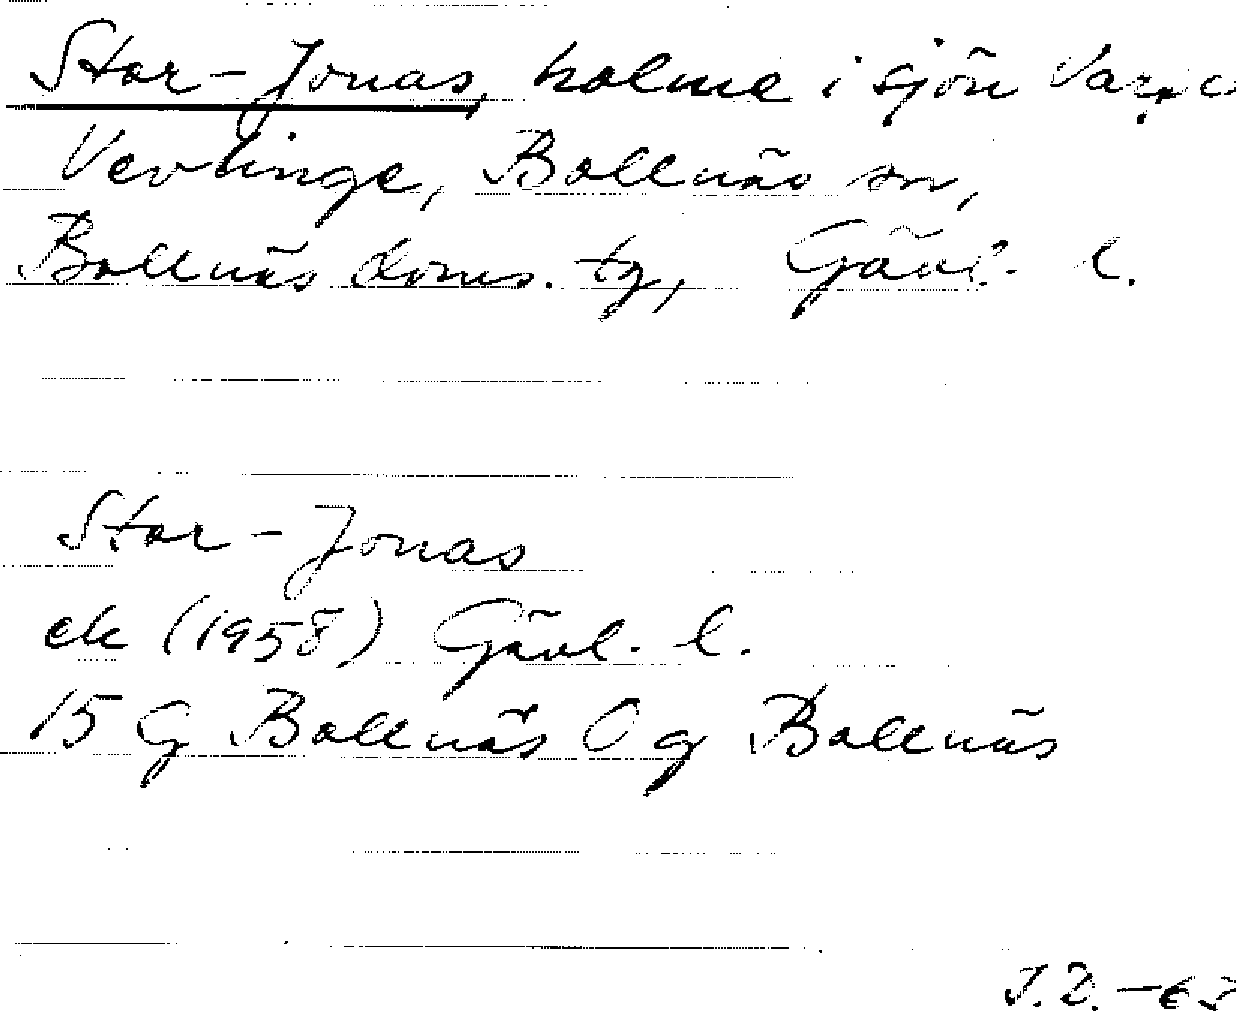 Stor-Jonas, holme i sjön
Vevlinge, Bollnäs sn,
Bollnäs doms. tg, Gävl. l.
Stor-Jonas
ek (1958) Gävl. l.
15 G Bollnäs Og Bollnäs
J.D. -63